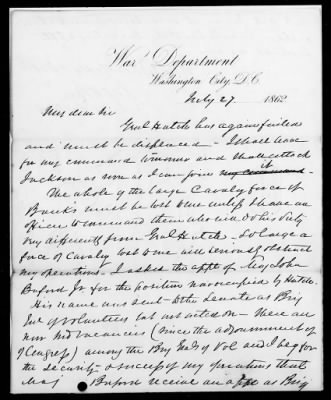 War Department
Washington City, D.C.
July 27 1862
My dear Sir
Genl Hatch has again failed
and must be displaced - I shall leave
for my command tomorrow and shall attack
Jackson as soon as I can join it
The whole of the large Cavalry force of
Banks must be lost to me unless I have an
officer to command them who will do his duty
very differently from Genl Hatch - So large a
force of Cavalry lost to me will seriously obstruct
my operations - I asked the appt of Maj John
Buford Jr for the position now occupied by Hatch.
His name was sent to the Senate as Brig
Genl of Volunteers but not acted on - There are
now vacancies (since the adjournment of
Congress) among the Brig Genls of Vol and I beg for
the security & success of my operations that
Maj Buford receive an appt as Brig